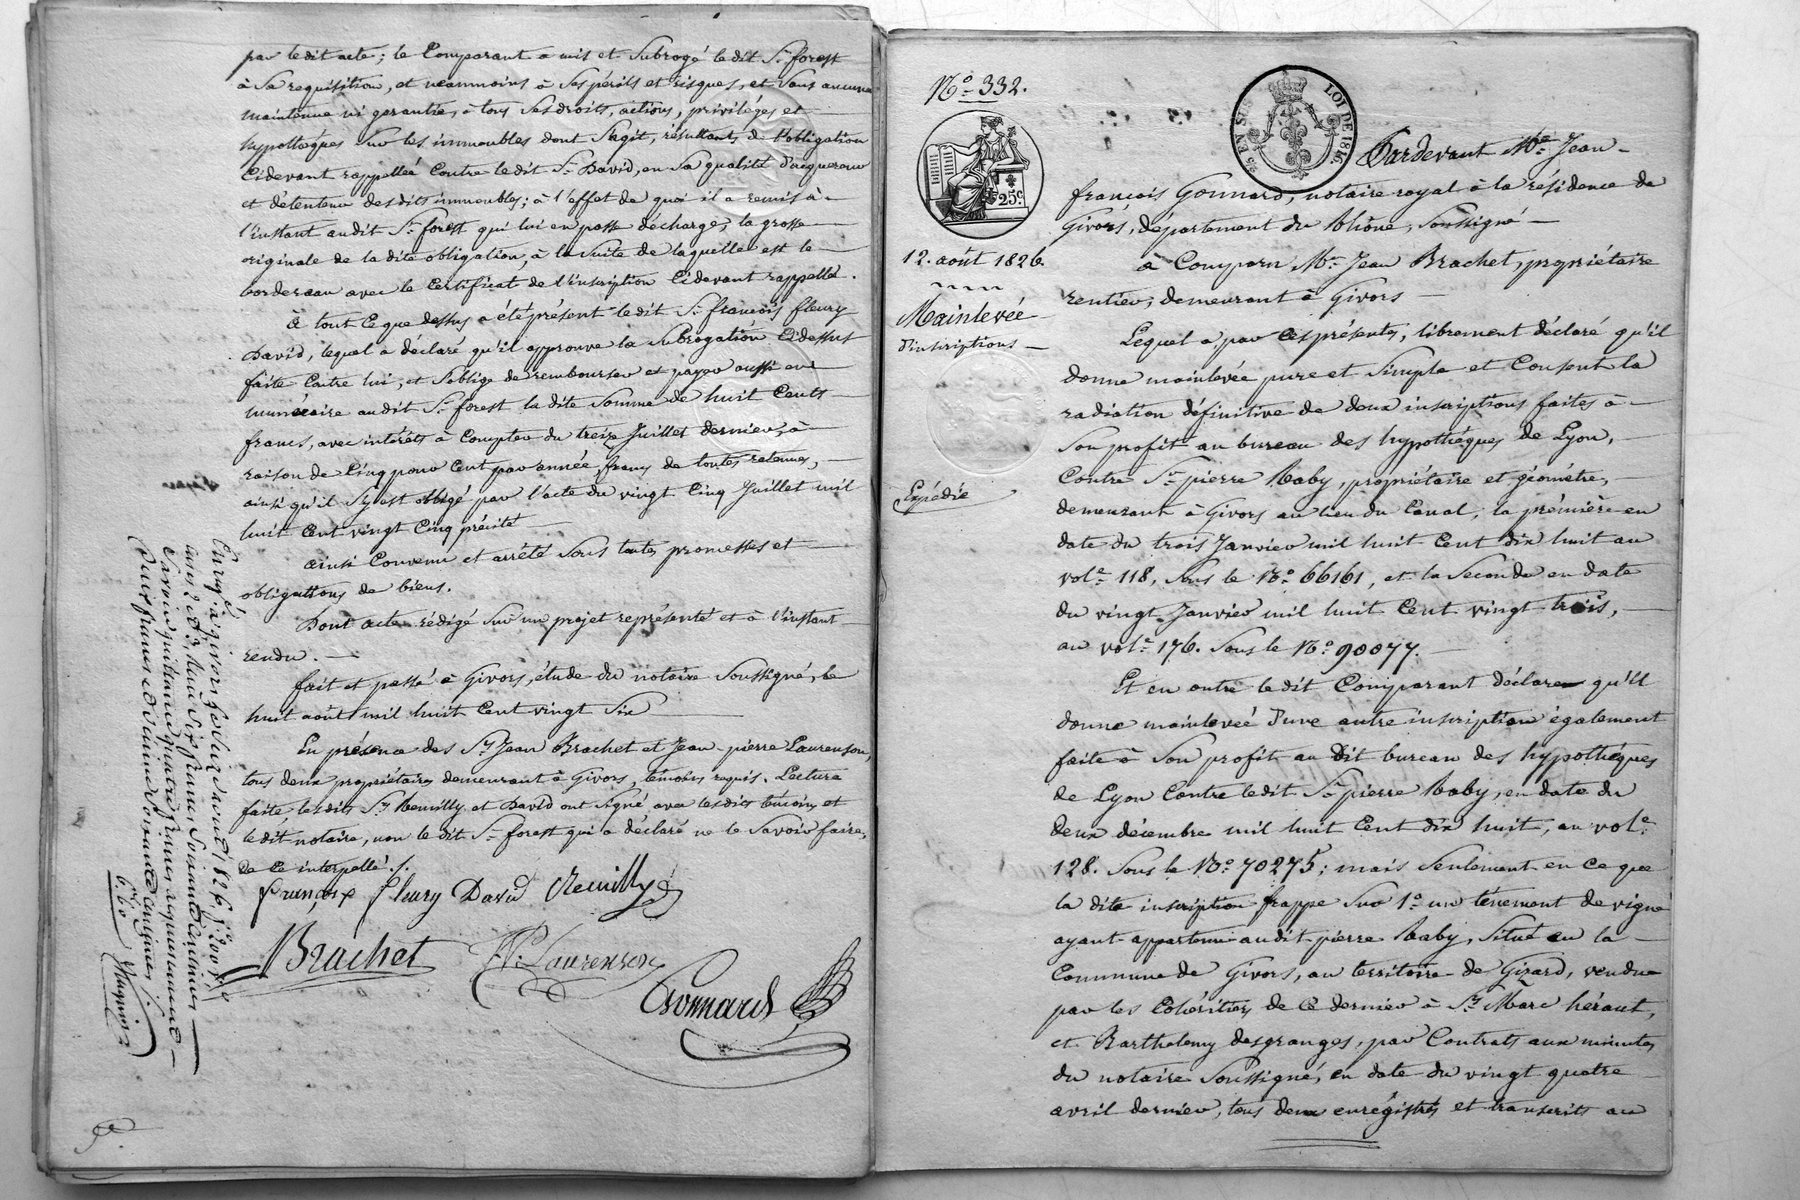 par ledit acte; le Comparant a mis et Subrogé ledit Sr. forest
à Sa requisition, et néanmoins à Ses périls et risques, et Sans aucune
maintenue ni garantie, à tous Ses droits, actions, privilèges et
hypothèques Sur les immeubles dont S'agit, résultants de l'obligation
Cidevant rappellée Contre ledit Sr. David, en Sa qualité d'acquereur
et détenteur desdits immeubles; à l'effet de quoi il a remis à
l'instant audit Sr. forest qui lui en passe décharge, la grosse
originale de la dite obligation, à la Suite de laquelle est le
bordereau avec le Certificat de l'inscription Cidevant rappellé.
à tout Ce que dessus a été présent ledit Sr. françois fleury
David, lequel a déclaré qu'il approuve la Subrogation Cidessus
faite Contre lui, et S'oblige de rembourser et payer aussi en
numéraire audit Sr. forest la dite Somme de huit Cents
francs, avec intérêts à Compter du treize Juillet dernier, à
raison de Cinq pour Cent par année, francs de toutes retenues,
ainsi qu'il S'y est obligé par l'acte du vingt Cinq Juillet mil
huit Cent vingt Cinq précité
ainsi Convenu et arrêté Sous toutes promesses et
obligations de biens.
Dont acte rédigé Sur un projet représenté et à l'instant
rendu.
fait et passé à Givors, étude du notaire Soussigné, le
huit août mil huit Cent vingt Six
En présence des Srs. Jean Brachet et Jean-pierre Laurenson,
tous deux propriétaires demeurant à Givors, témoins requis. Lecture
faite, lesdits Srs. Reuilly et David ont Signé avec lesdits témoins et
ledit notaire, non le dit Sr. forest qui a déclaré ne le Savoir faire,
de Ce interpellé./.
françois fleury David Reuilly
JBrachet JP. Laurenson
Gonnard
Enregé. à givors le dix août 1826, fo. 200 Ro.
Cases 2 et 3, Reçu Six francs Soixante Centimes
Savoir quittance quatre francs
Deux francs et Soixante Centimes
6. 60
No. 332.
25 EN SUS LOI DE 1816
25c
12. août 1826.
Mainlevée
d'inscriptions
Expédié
Pardevant Me. Jean
françois Gonnard, notaire royal à la résidence de
Givors, département du Rhône, Soussigné
a Comparu Mr. Jean Brachet, propriétaire
rentier, demeurant à Givors
Lequel a par Ces présentes, librement déclaré qu'il
donne mainlevée pure et Simple et Consent la
radiation définitive de deux inscriptions faites à
Son profit au bureau des hypothèques de Lyon,
Contre Sr. pierre Raby, propriétaire et géomètre,
demeurant à Givors au lieu du Canal; la première en
date du trois Janvier mil huit Cent dix huit au
vole. 118, Sous le No. 66161, et la Seconde en date
du vingt Janvier mil huit Cent vingt trois,
au vole. 176. Sous le No. 90077.
Et en outre ledit Comparant déclare qu'il
donne mainlevée d'une autre inscription également
faite à Son profit au Dit bureau des hypothèques
de Lyon Contre ledit Sr. pierre Raby, en date du
deux décembre mil huit Cent dix huit, au vole.
128. Sous le No. 70275; mais Seulement en Ce que
la dite inscription frappe Sur 1o. un ténement de vigne
ayant appartenu audit pierre Raby, Situé en la
Commune de Givors, au territoire de Gizard, vendue
par les Cohéritiers de Ce dernier à Srs. Marc héraut,
et Barthelemy desgranges, par Contrats aux minutes
du notaire Soussigné, en date du vingt quatre
avril dernier, tous deux enregistrés et transcrits au